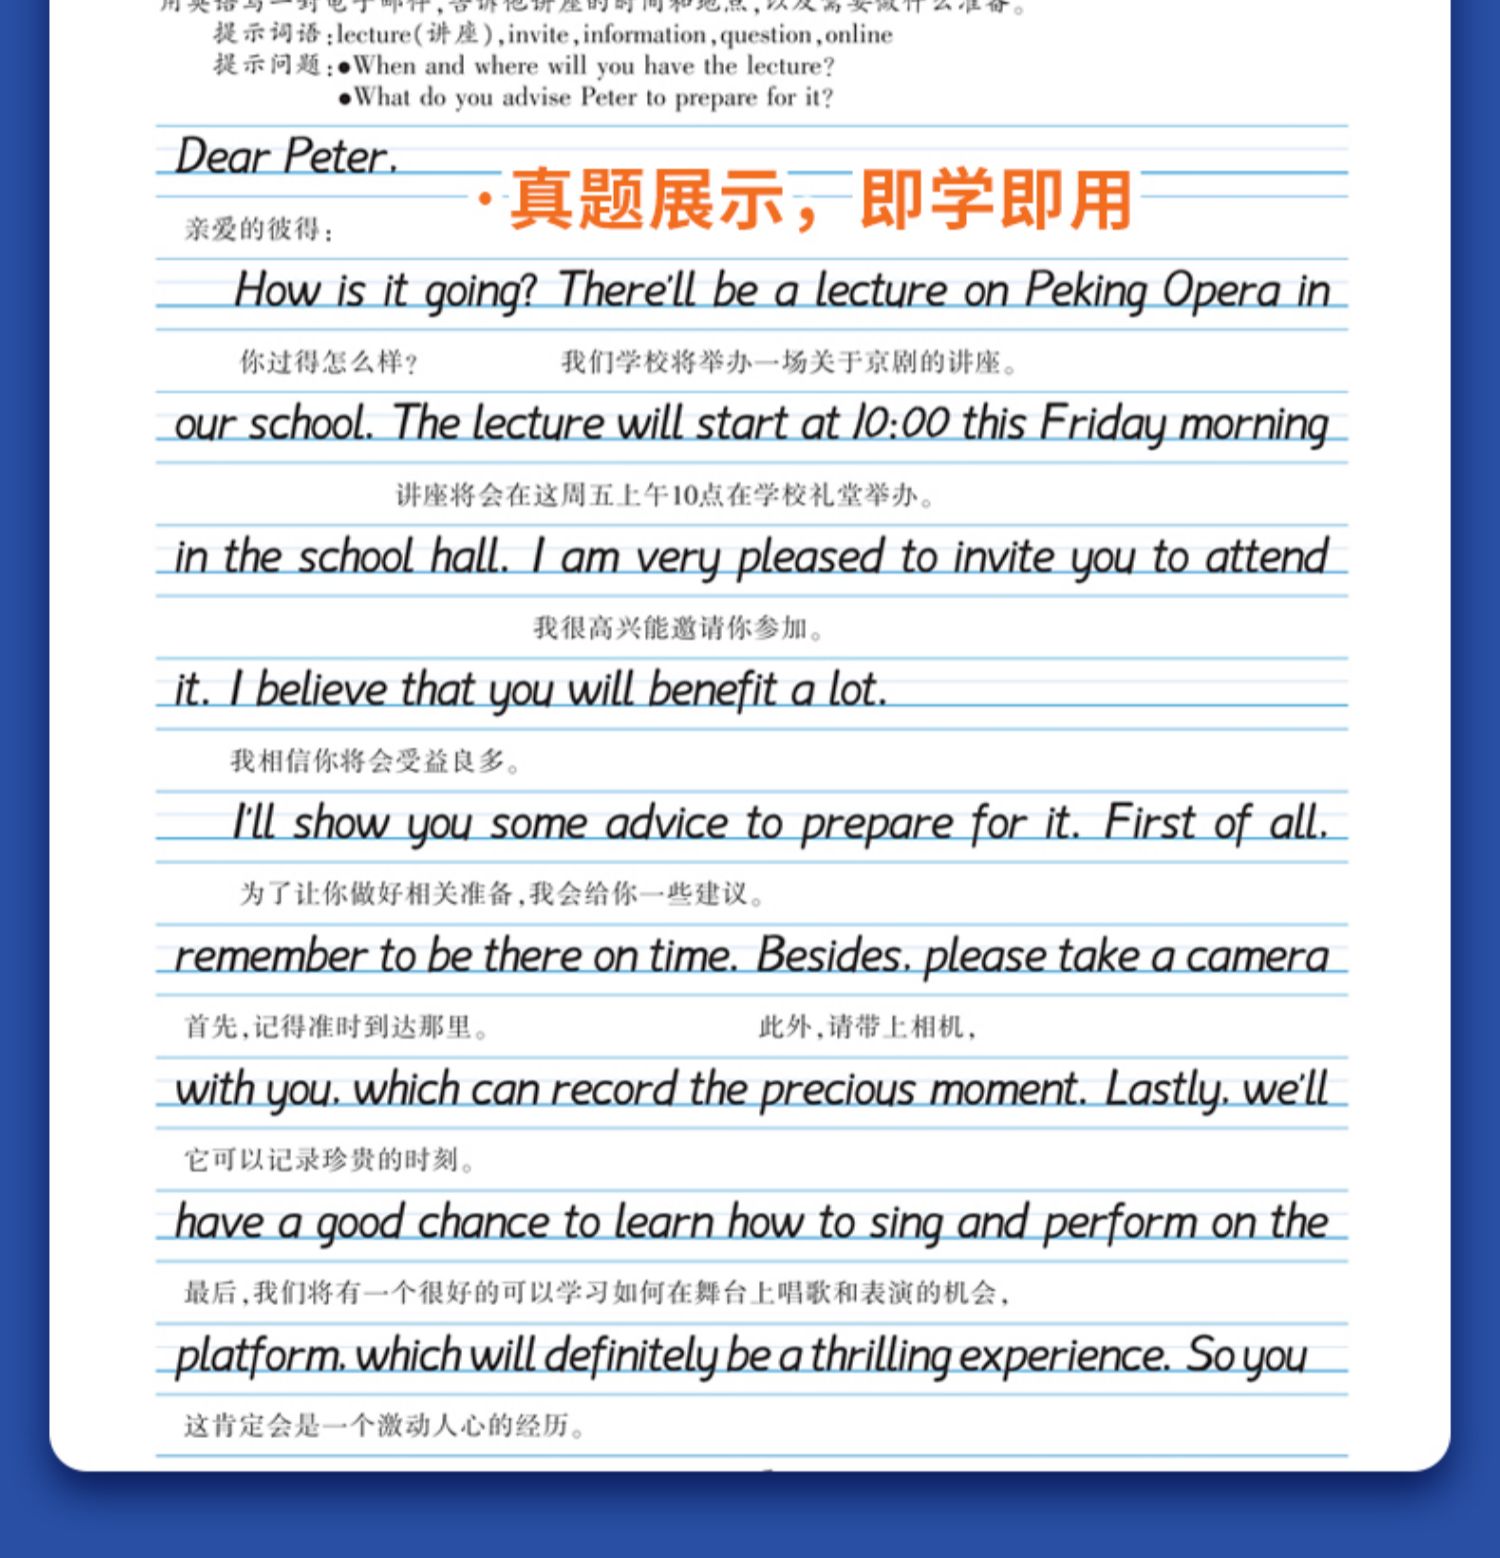 用英语写一封电子邮件,告诉他讲座的时间和地点,以及需要做什么准备。
提示词语:lecture(讲座),invite,information,question,online
提示问题:●When and where will you have the lecture?
●What do you advise Peter to prepare for it?
Dear Peter,
·真题展示，即学即用
亲爱的彼得:
How is it going? There'll be a lecture on Peking Opera in
你过得怎么样? 我们学校将举办一场关于京剧的讲座。
our school. The lecture will start at 10:00 this Friday morning
讲座将会在这周五上午10点在学校礼堂举办。
in the school hall. I am very pleased to invite you to attend
我很高兴能邀请你参加。
it. I believe that you will benefit a lot.
我相信你将会受益良多。
I'll show you some advice to prepare for it. First of all,
为了让你做好相关准备,我会给你一些建议。
remember to be there on time. Besides, please take a camera
首先,记得准时到达那里。 此外,请带上相机,
with you, which can record the precious moment. Lastly, we'll
它可以记录珍贵的时刻。
have a good chance to learn how to sing and perform on the
最后,我们将有一个很好的可以学习如何在舞台上唱歌和表演的机会,
platform, which will definitely be a thrilling experience. So you
这肯定会是一个激动人心的经历。